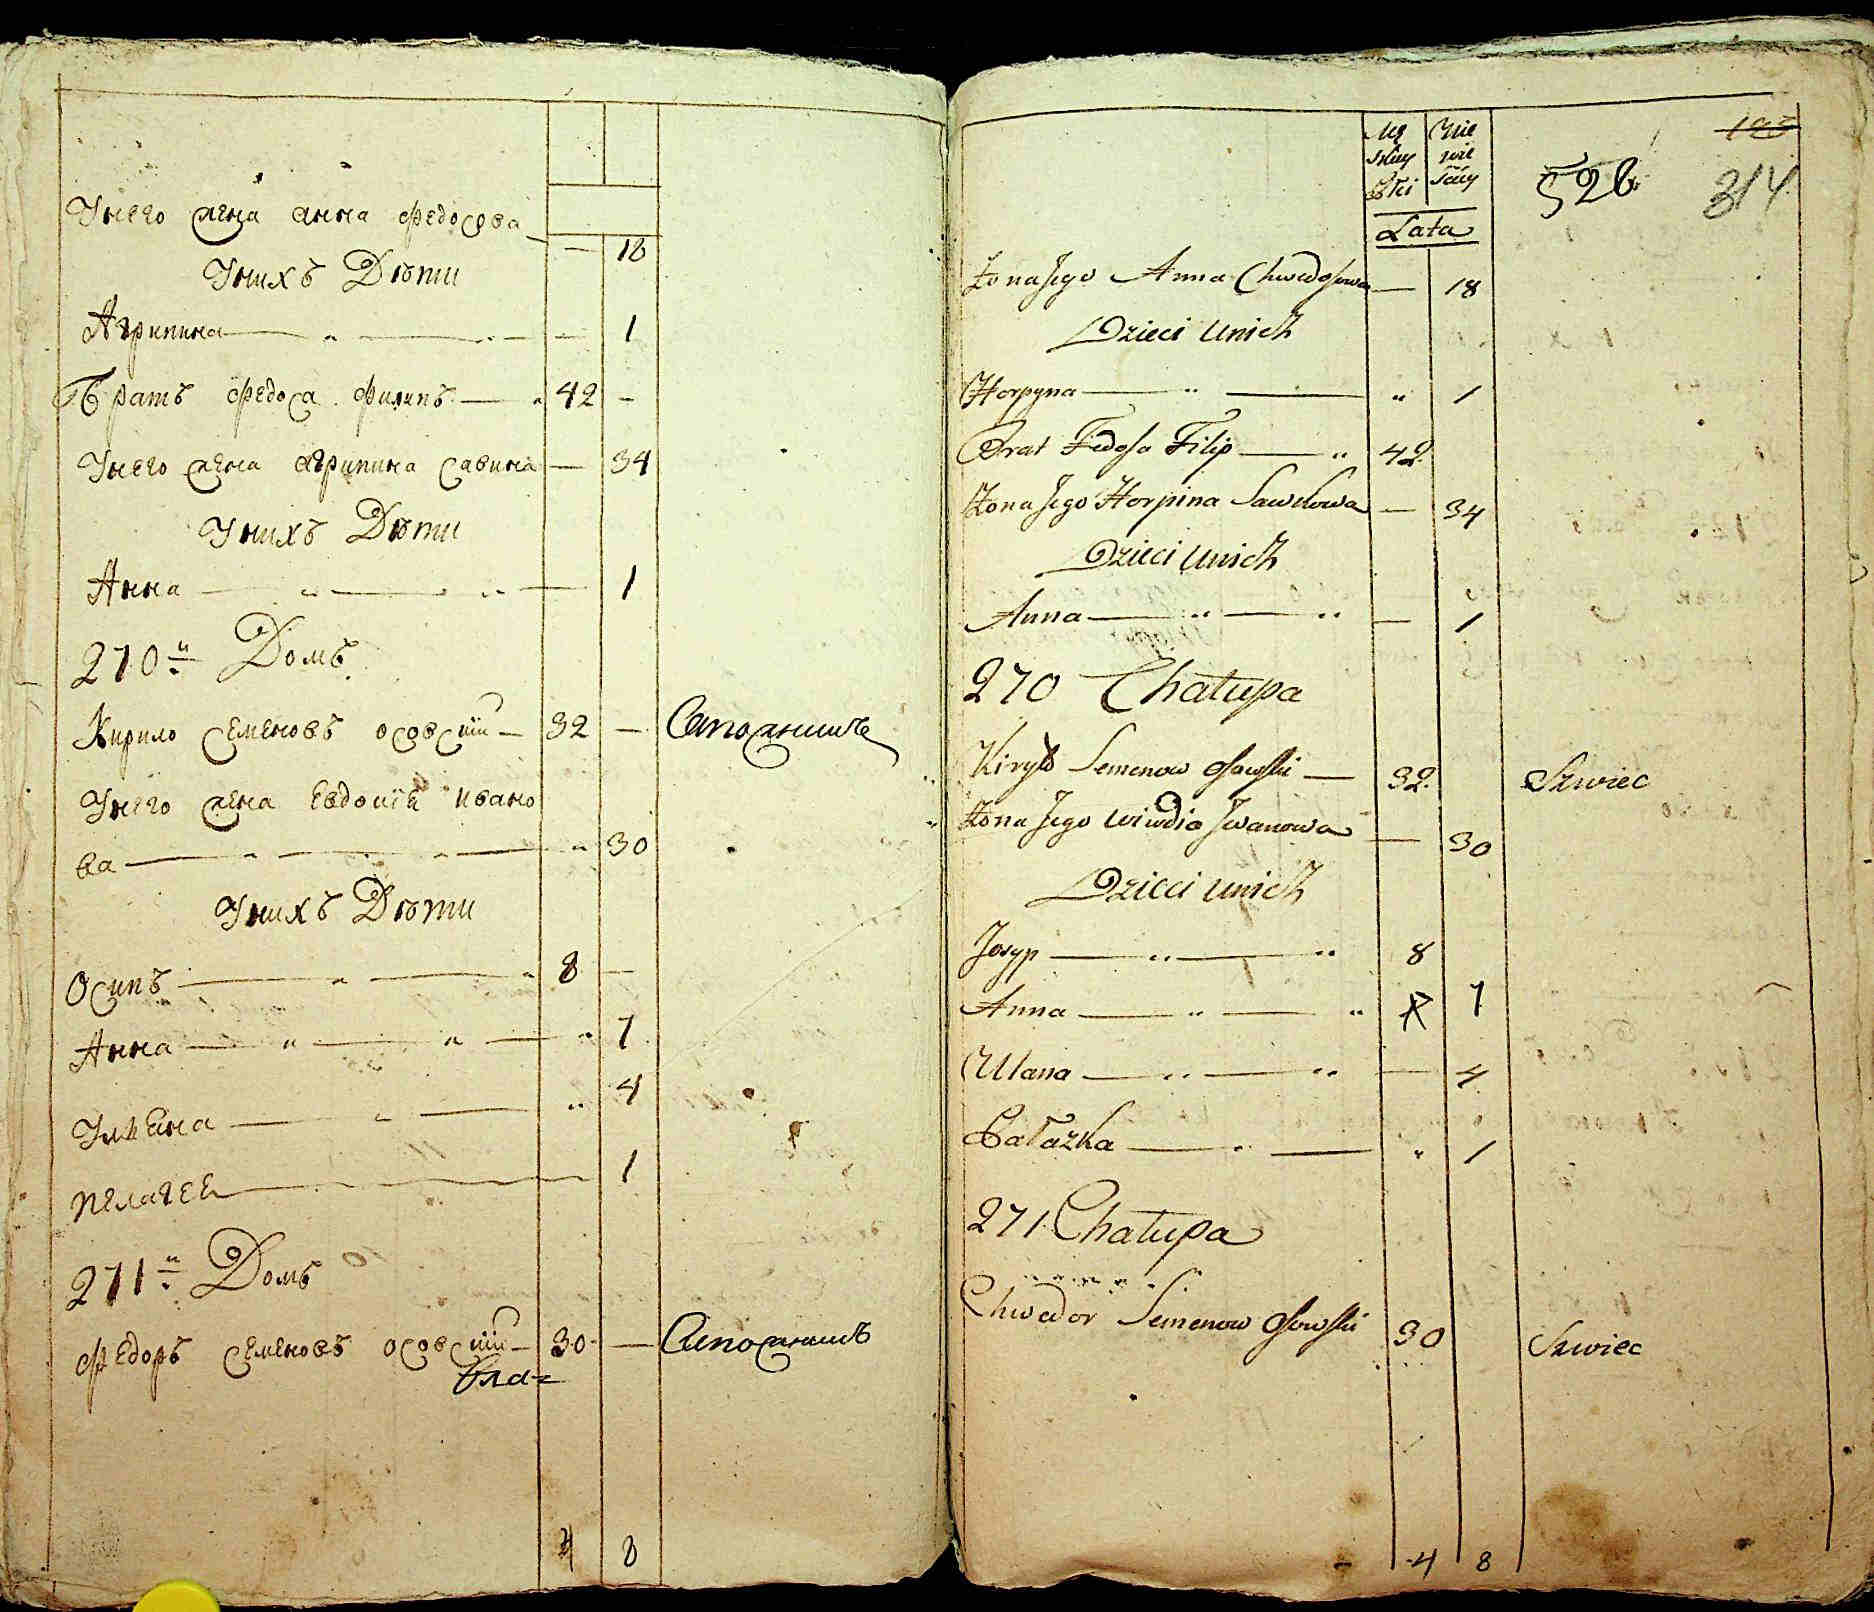 У него жена анна федосова — 18
У нихъ Дѣти
Агрипина — 1
Братъ федоса филипъ — 42 —
У него жена агрипина савина — 34
У нихъ Дѣти
Анна — 1
270й Домъ
Кирило семеновъ осовскій — 32 — Сапожникъ
У него жена Евдокія Ивано
ва — 30
У нихъ Дѣти
Осипъ — 8 —
Анна — 7
Ульяна — 4
пелагея — 1
271й Домъ
федоръ семеновъ осовскій — 30 — Сапожникъ
4 8
125
526 314
Lata
Żona Jego Anna Chwedosowa — 18
Dzieci unich
Horpyna — 1
Brat Fedosa Filip — 42
Żona Jego Horpina Sawkowa — 34
Dzieci unich
Anna — 1
270 Chałupa
Kiryło Semenow Osowski — 32 Szwiec
Żona Jego Wiwdia Jwanowa — 30
Dzieci unich
Josyp — 8
Anna — 7
Ulana — 4
Pałazka — 1
271 Chałupa
Chwedor Semenow Osowski 30 Szwiec
4 8